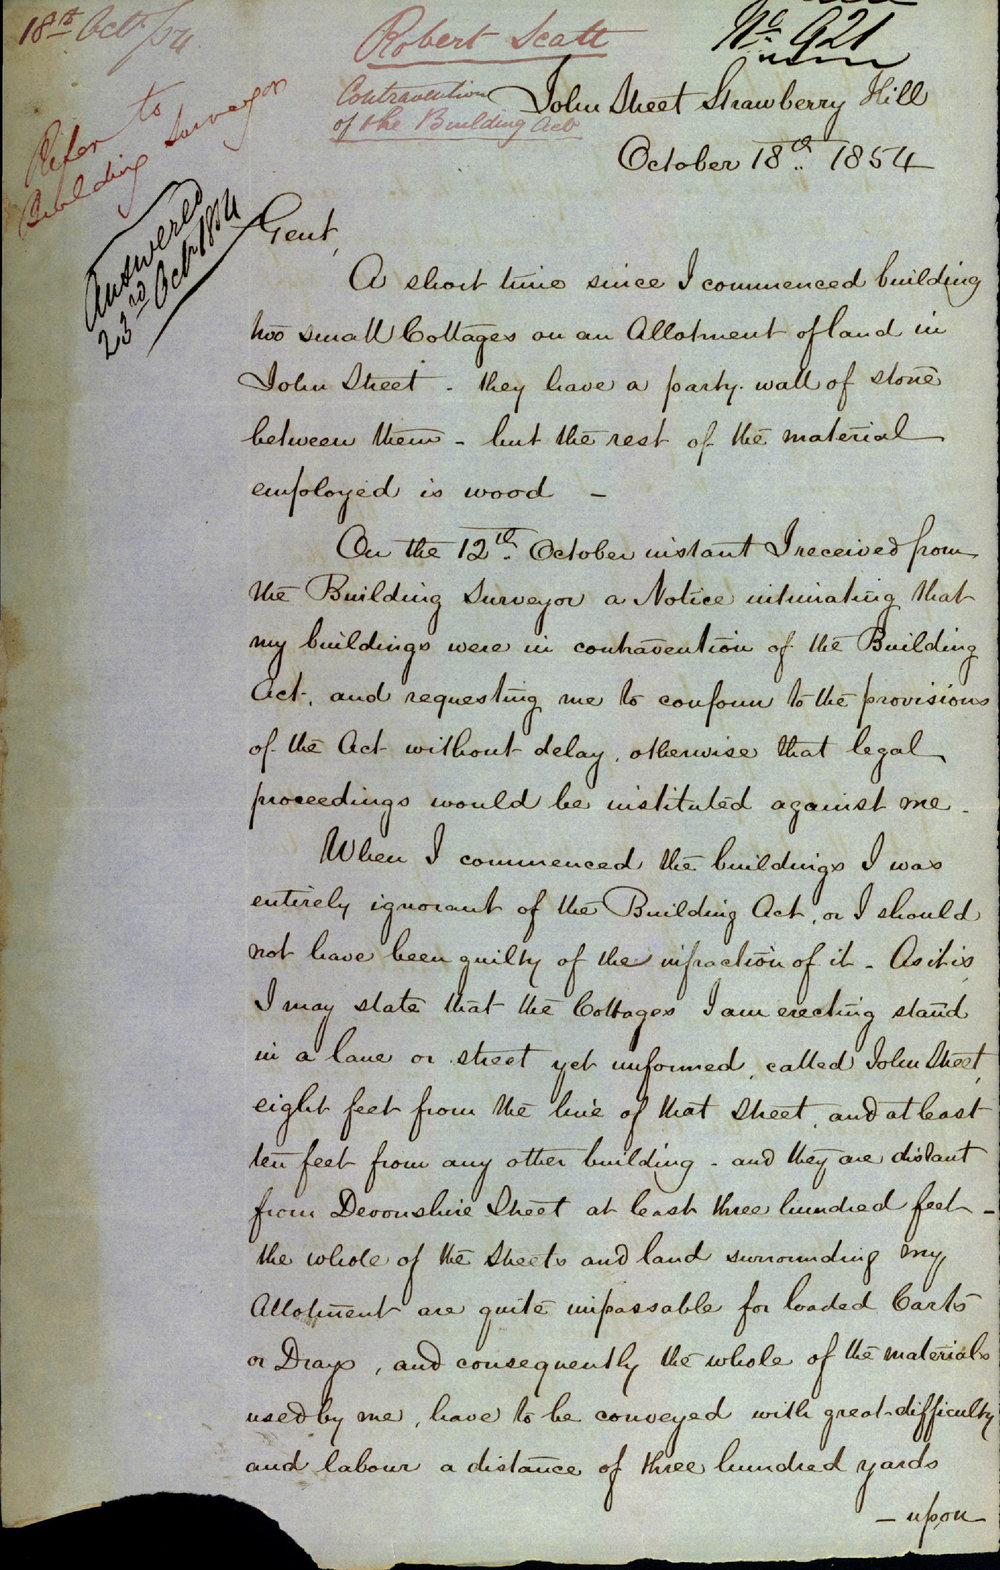 18th Octr/54
Robert Scott
No. 921
Contravention
of the Building Act
Refer to
Building Surveyor
Answered
23rd Octr 1854
John Street Strawberry Hill
October 18th 1854
Gent,
A short time since I commenced building
two small Cottages on an Allotment of land in
John Street - they have a party wall of stone
between them - but the rest of the material
employed is wood -
On the 12th October instant I received from
the Building Surveyor a Notice intimating that
my buildings were in contravention of the Building
Act, and requesting me to conform to the provisions
of the Act without delay, otherwise that legal
proceedings would be instituted against me -
When I commenced the buildings I was
entirely ignorant of the Building Act, or I should
not have been guilty of the infraction of it - As it is,
I may state that the Cottages I am erecting stand
in a lane or street yet unformed, called John Street,
eight feet from the line of that Street, and at least
ten feet from any other building - and they are distant
from Devonshire Street at least three hundred feet -
the whole of the Streets and land surrounding my
Allotment are quite impassable for loaded Carts
or Drays, and consequently the whole of the materials
used by me, have to be conveyed with great difficulty
and labour a distance of three hundred yards
- upon -